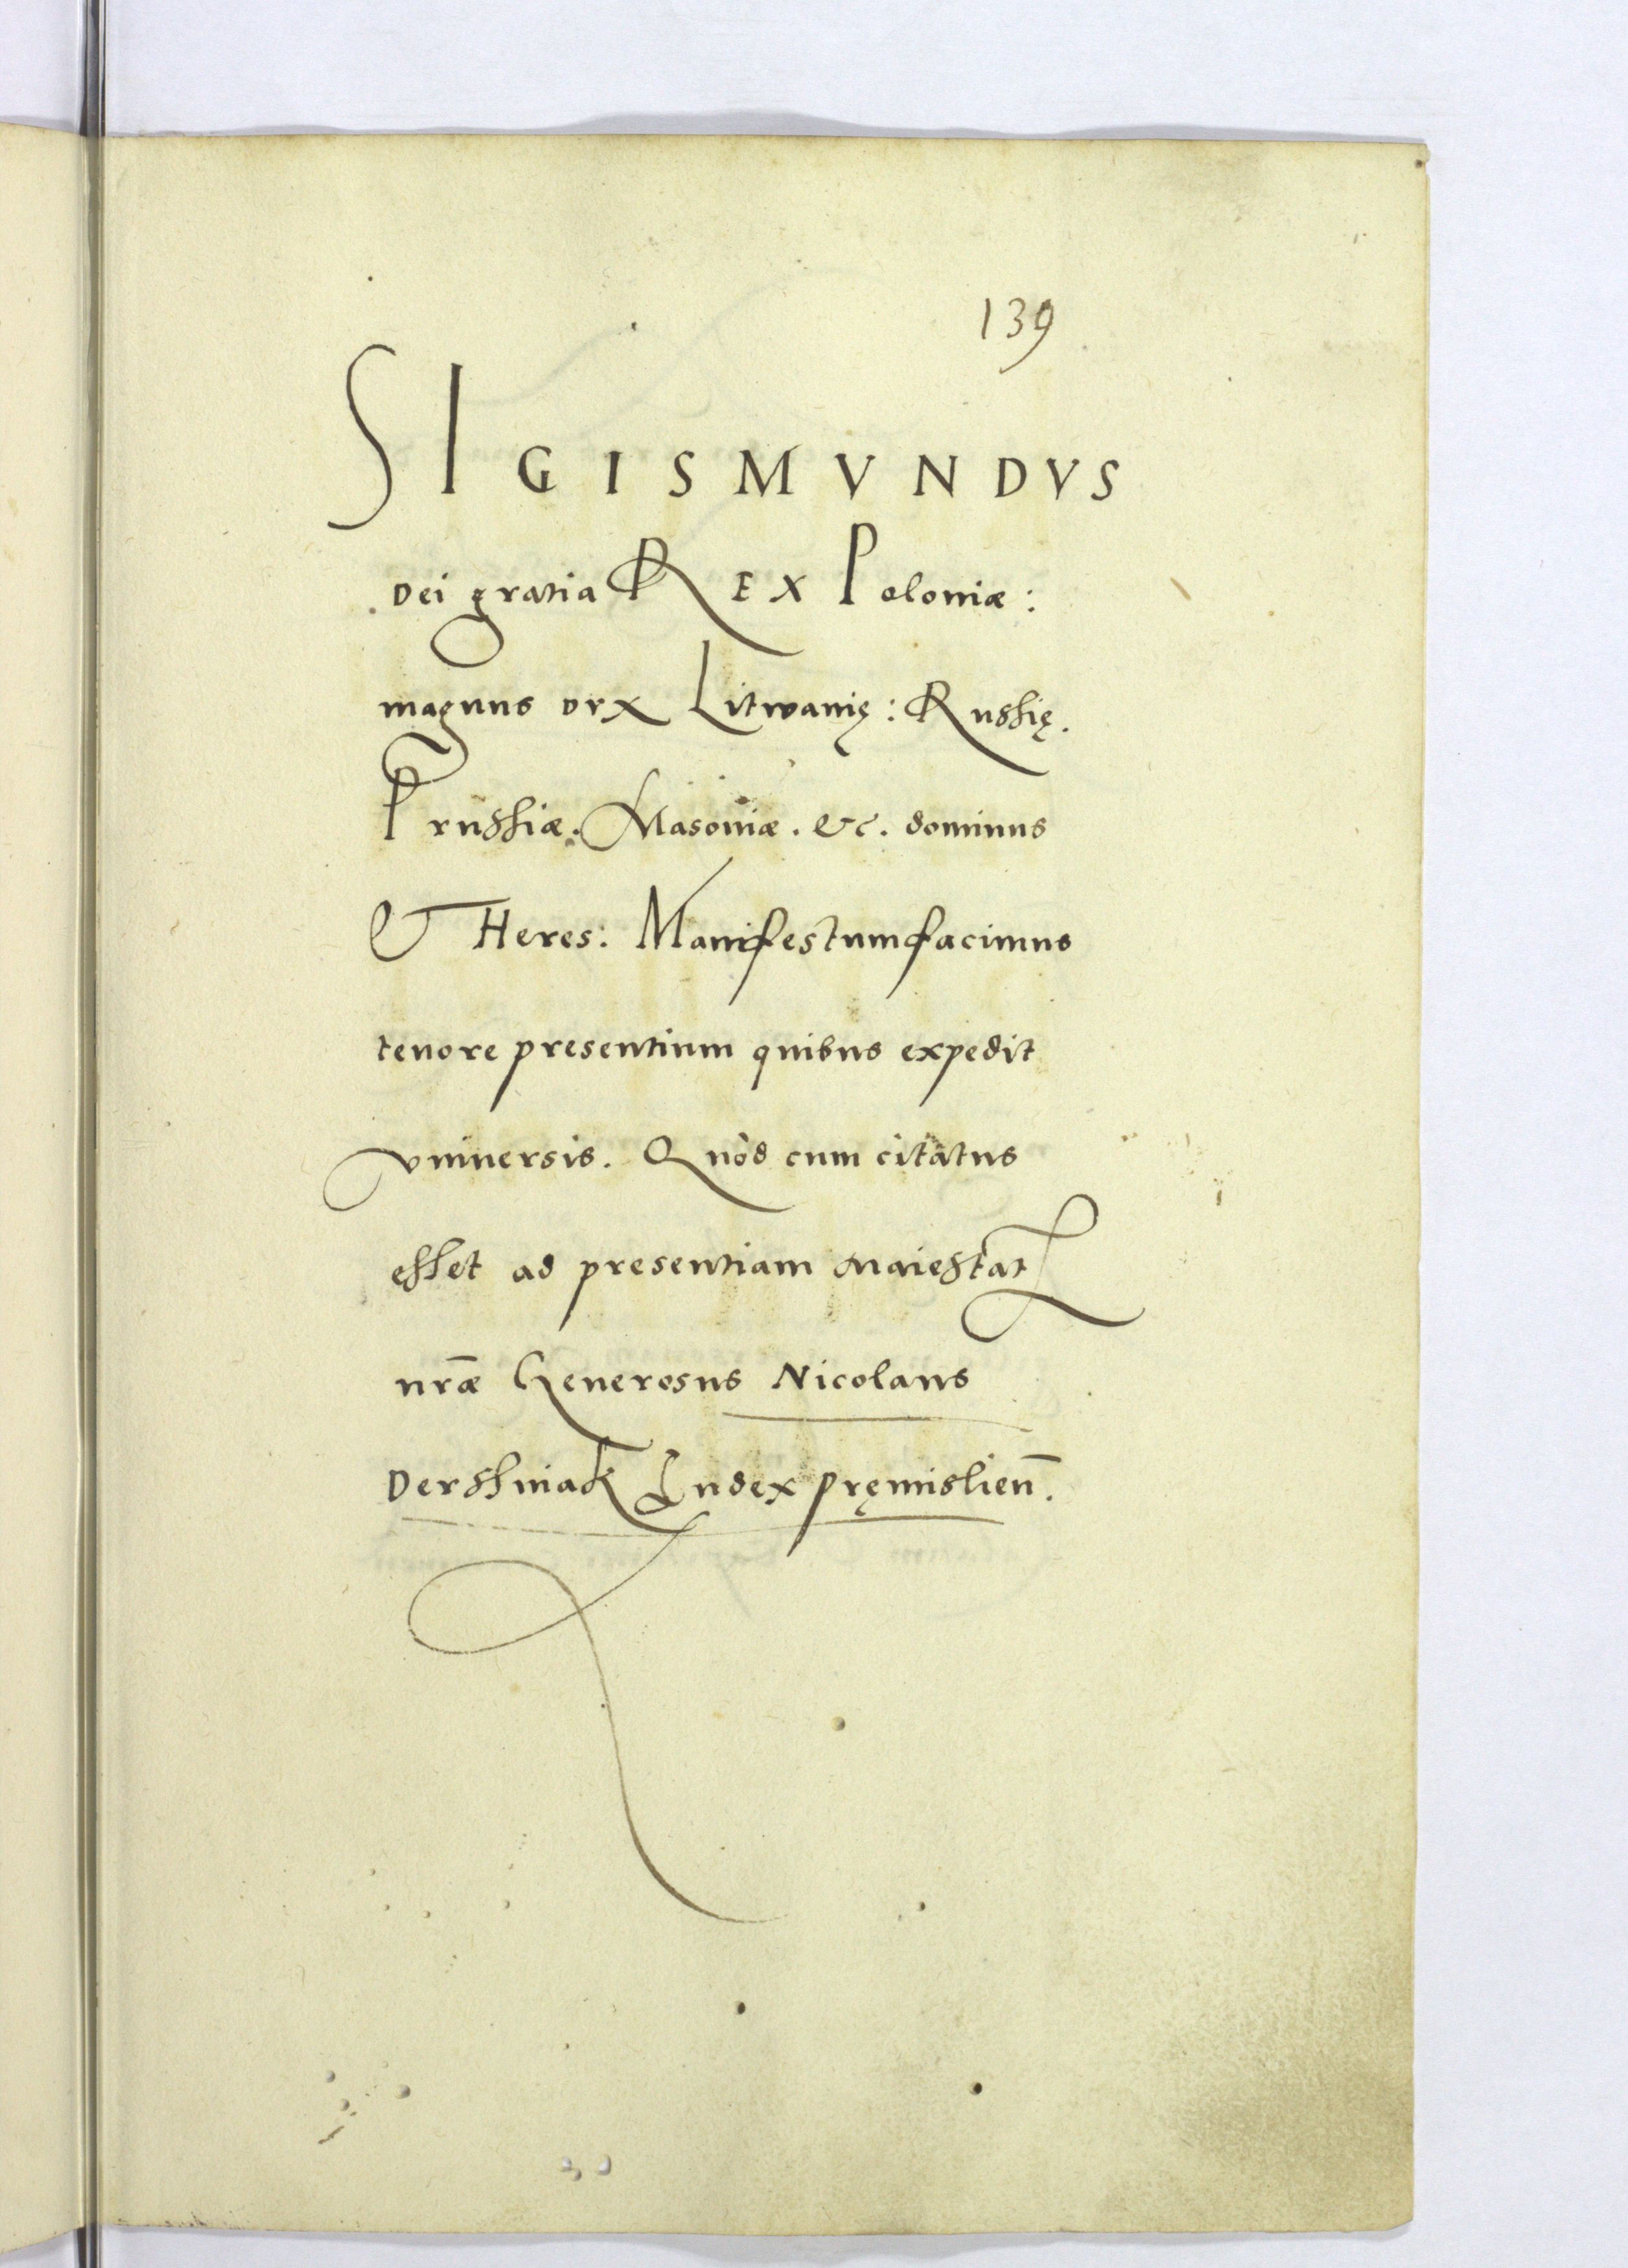 139
SIGISMVNDVS
Dei gratia REX Poloniæ:
magnus Dvx Litwanię: Russię.
Prussiæ. Masoviæ. &c. dominus
& Heres: Manifestum facimus
tenore presentium quibus expedit
vniuersis. Quòd cum citatus
esset ad presentiam Maiestatꝭ
nr̄æ Generosus Nicolaus
Dersshniak Iudex pręmislien̄.